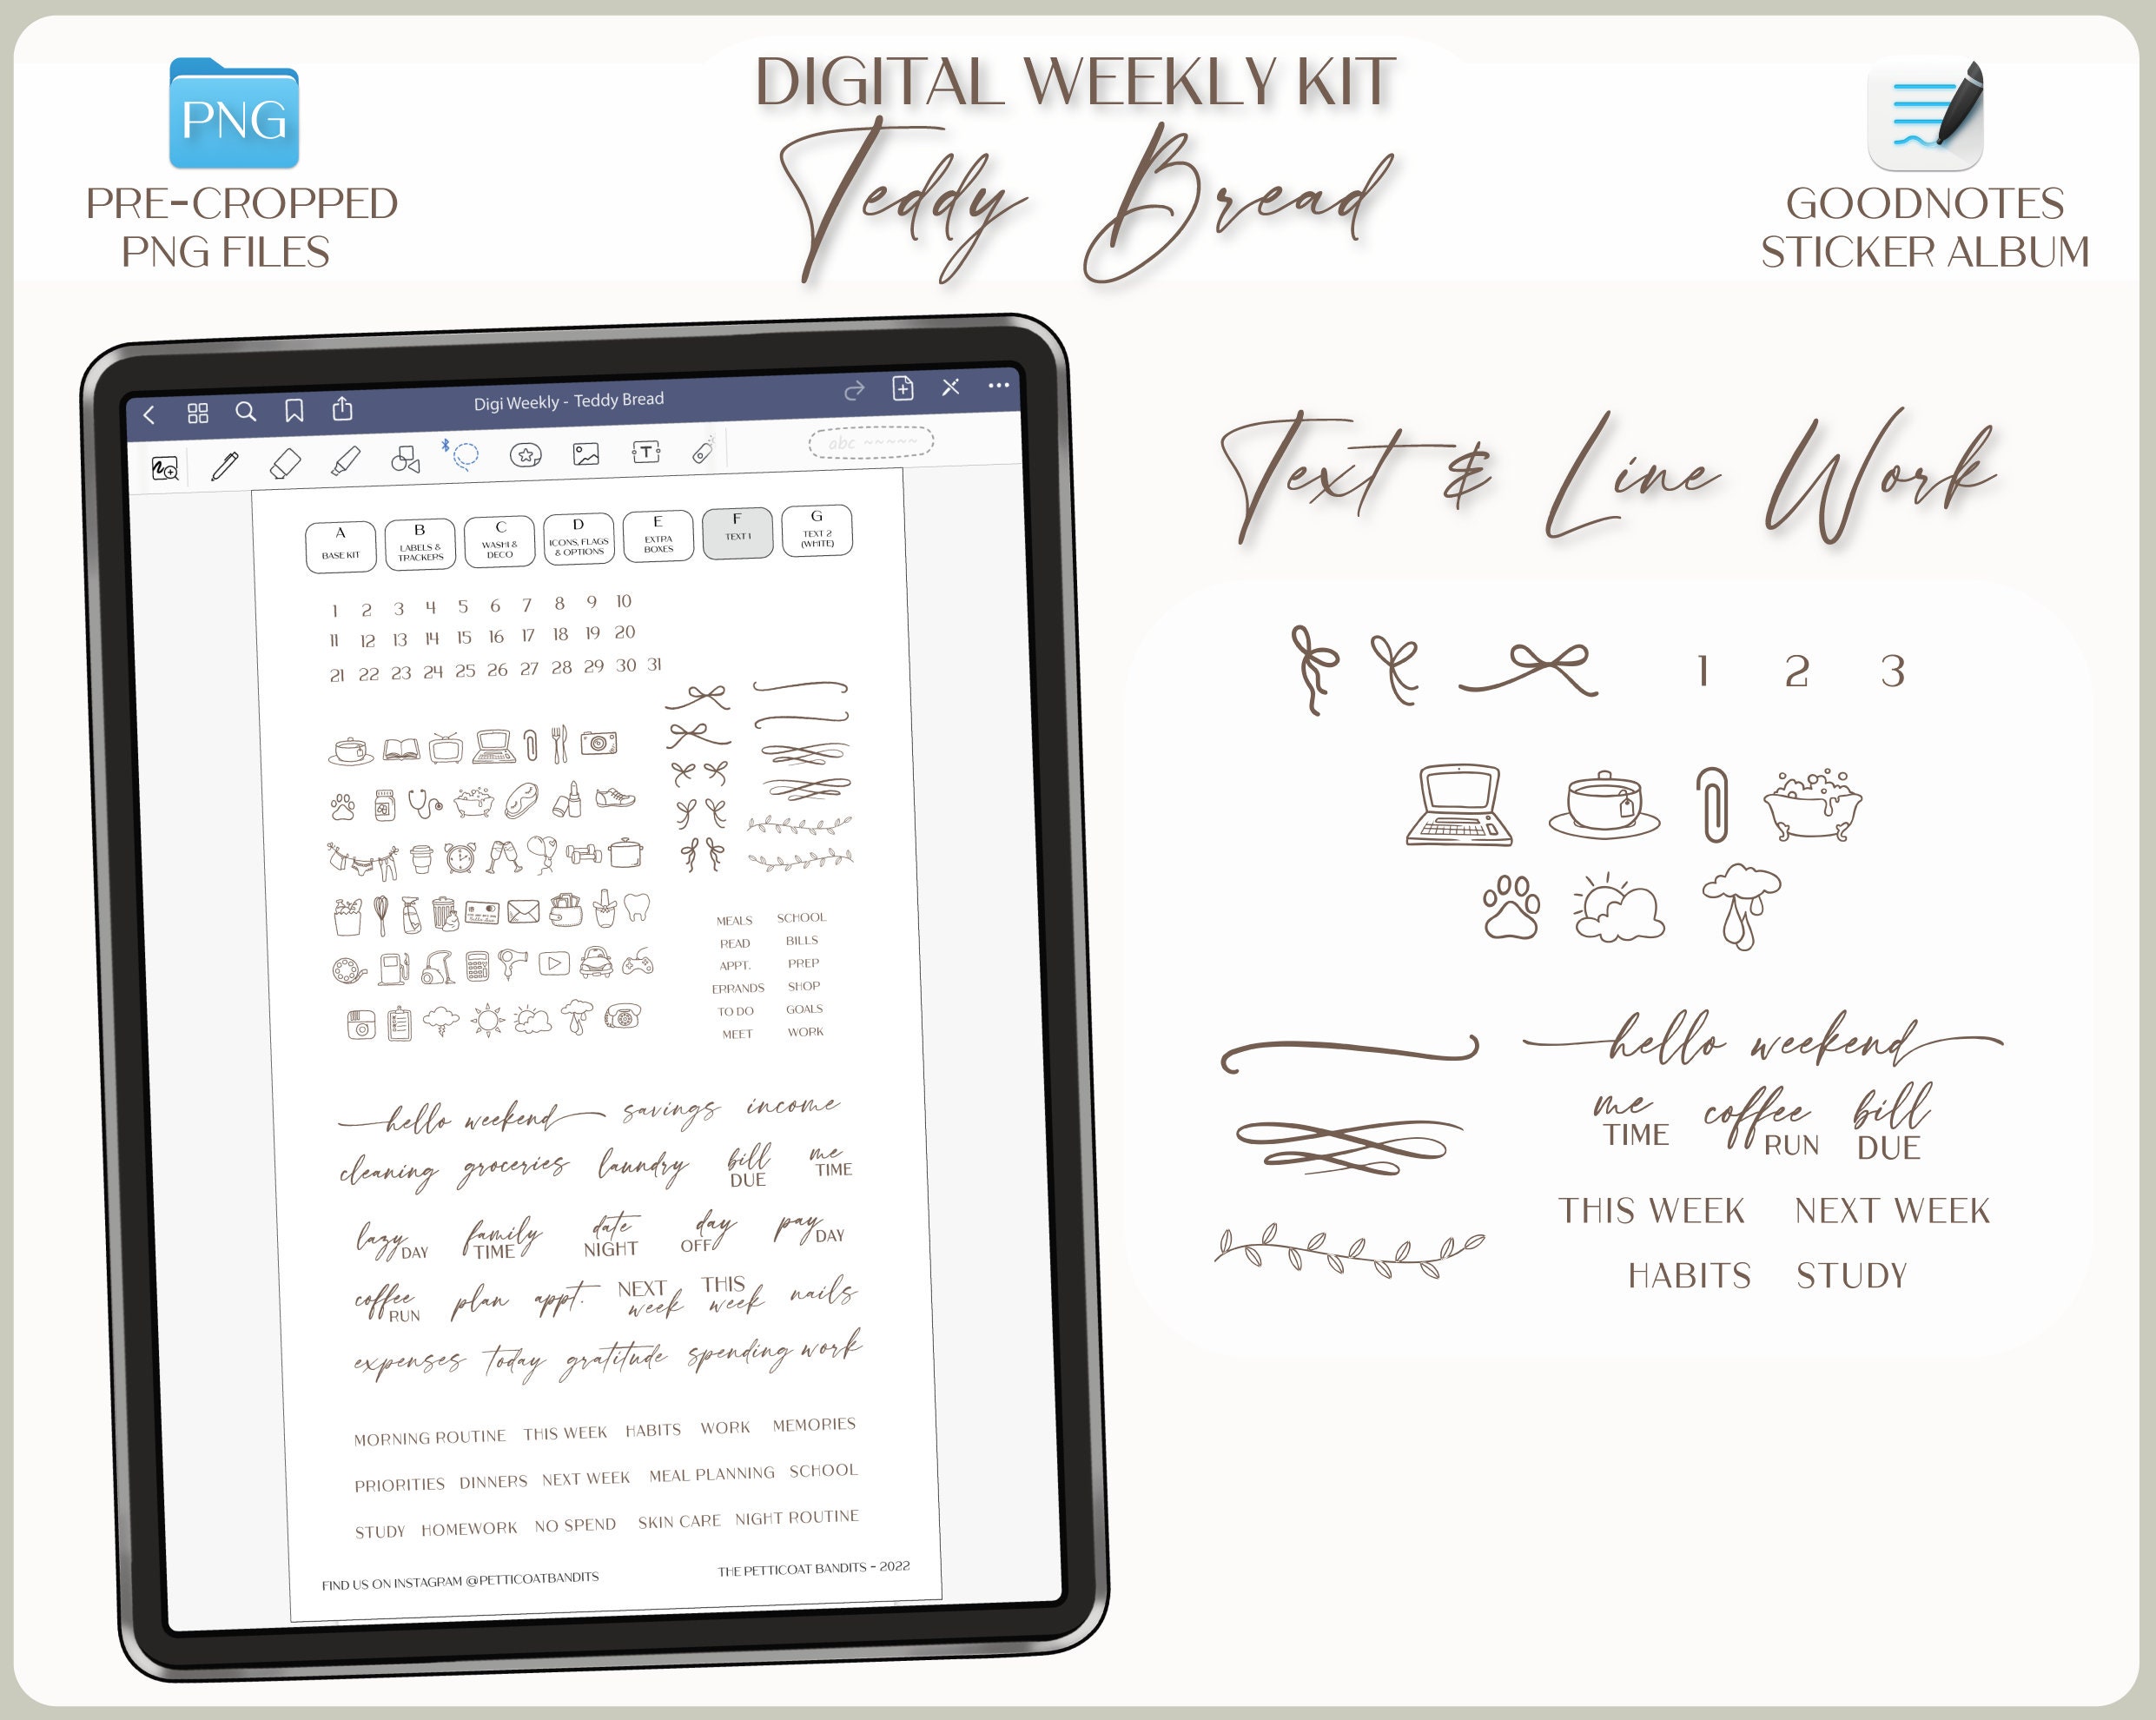 DIGITAL WEEKLY KIT
Teddy Bread
PNG
PRE-CROPPED
PNG FILES
GOODNOTES
STICKER ALBUM
Digi Weekly - Teddy Bread
T
abc ~~~~~
A
BASE KIT
B
LABELS &
TRACKERS
C
WASHI &
DECO
D
ICONS, FLAGS
& OPTIONS
E
EXTRA
BOXES
F
TEXT 1
G
TEXT 2
(WHITE)
1 2 3 4 5 6 7 8 9 10
11 12 13 14 15 16 17 18 19 20
21 22 23 24 25 26 27 28 29 30 31
MEALS SCHOOL
READ BILLS
APPT. PREP
ERRANDS SHOP
TO DO GOALS
MEET WORK
hello weekend savings income
cleaning groceries laundry bill DUE me TIME
lazy DAY family TIME date NIGHT day OFF pay DAY
coffee RUN plan appt. NEXT week THIS week nails
expenses today gratitude spending work
MORNING ROUTINE THIS WEEK HABITS WORK MEMORIES
PRIORITIES DINNERS NEXT WEEK MEAL PLANNING SCHOOL
STUDY HOMEWORK NO SPEND SKIN CARE NIGHT ROUTINE
FIND US ON INSTAGRAM @PETTICOATBANDITS
THE PETTICOAT BANDITS - 2022
Text & Line Work
1 2 3
hello weekend
me TIME coffee RUN bill DUE
THIS WEEK NEXT WEEK
HABITS STUDY